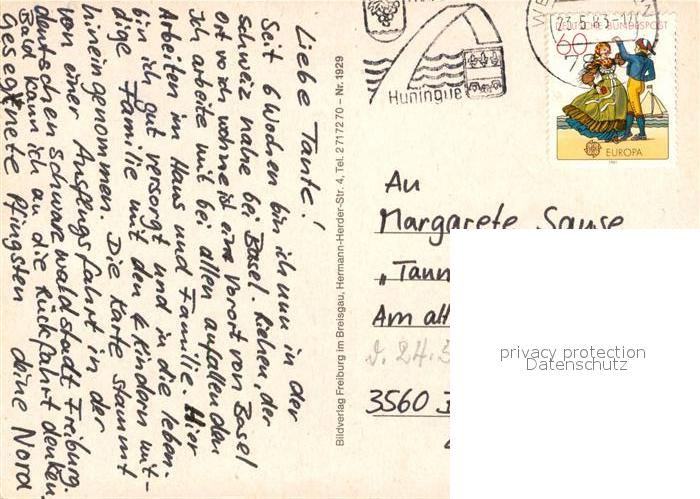 Liebe Tante!
Seit 6 Wochen bin ich nun in der
schweiz nahe bei Basel. Riehen, der
Ort wo ich wohne ist ein Vorort von Basel
Ich arbeite mit bei allen anfallenden
Arbeiten im Haus und Familie. Hier
bin ich gut versorgt und in die leben-
dige Familie mit den 4 Kindern mit-
hineingenommen. Die Karte stammt
von einer Ausflugsfahrt in der
deutschen schwarzwaldstadt Freiburg.
Bald kann ich an die Rückfahrt denken.
Gesegnete Pfingsten deine Nora
Bildverlag Freiburg im Breisgau, Hermann-Herder-Str. 4, Tel. 2717270 – Nr. 1929
Huningue
23.5.83-17
DEUTSCHE BUNDESPOST
60
EUROPA
1981
An
Margarete Sause
„Tann
Am alt
3560
privacy protection
Datenschutz